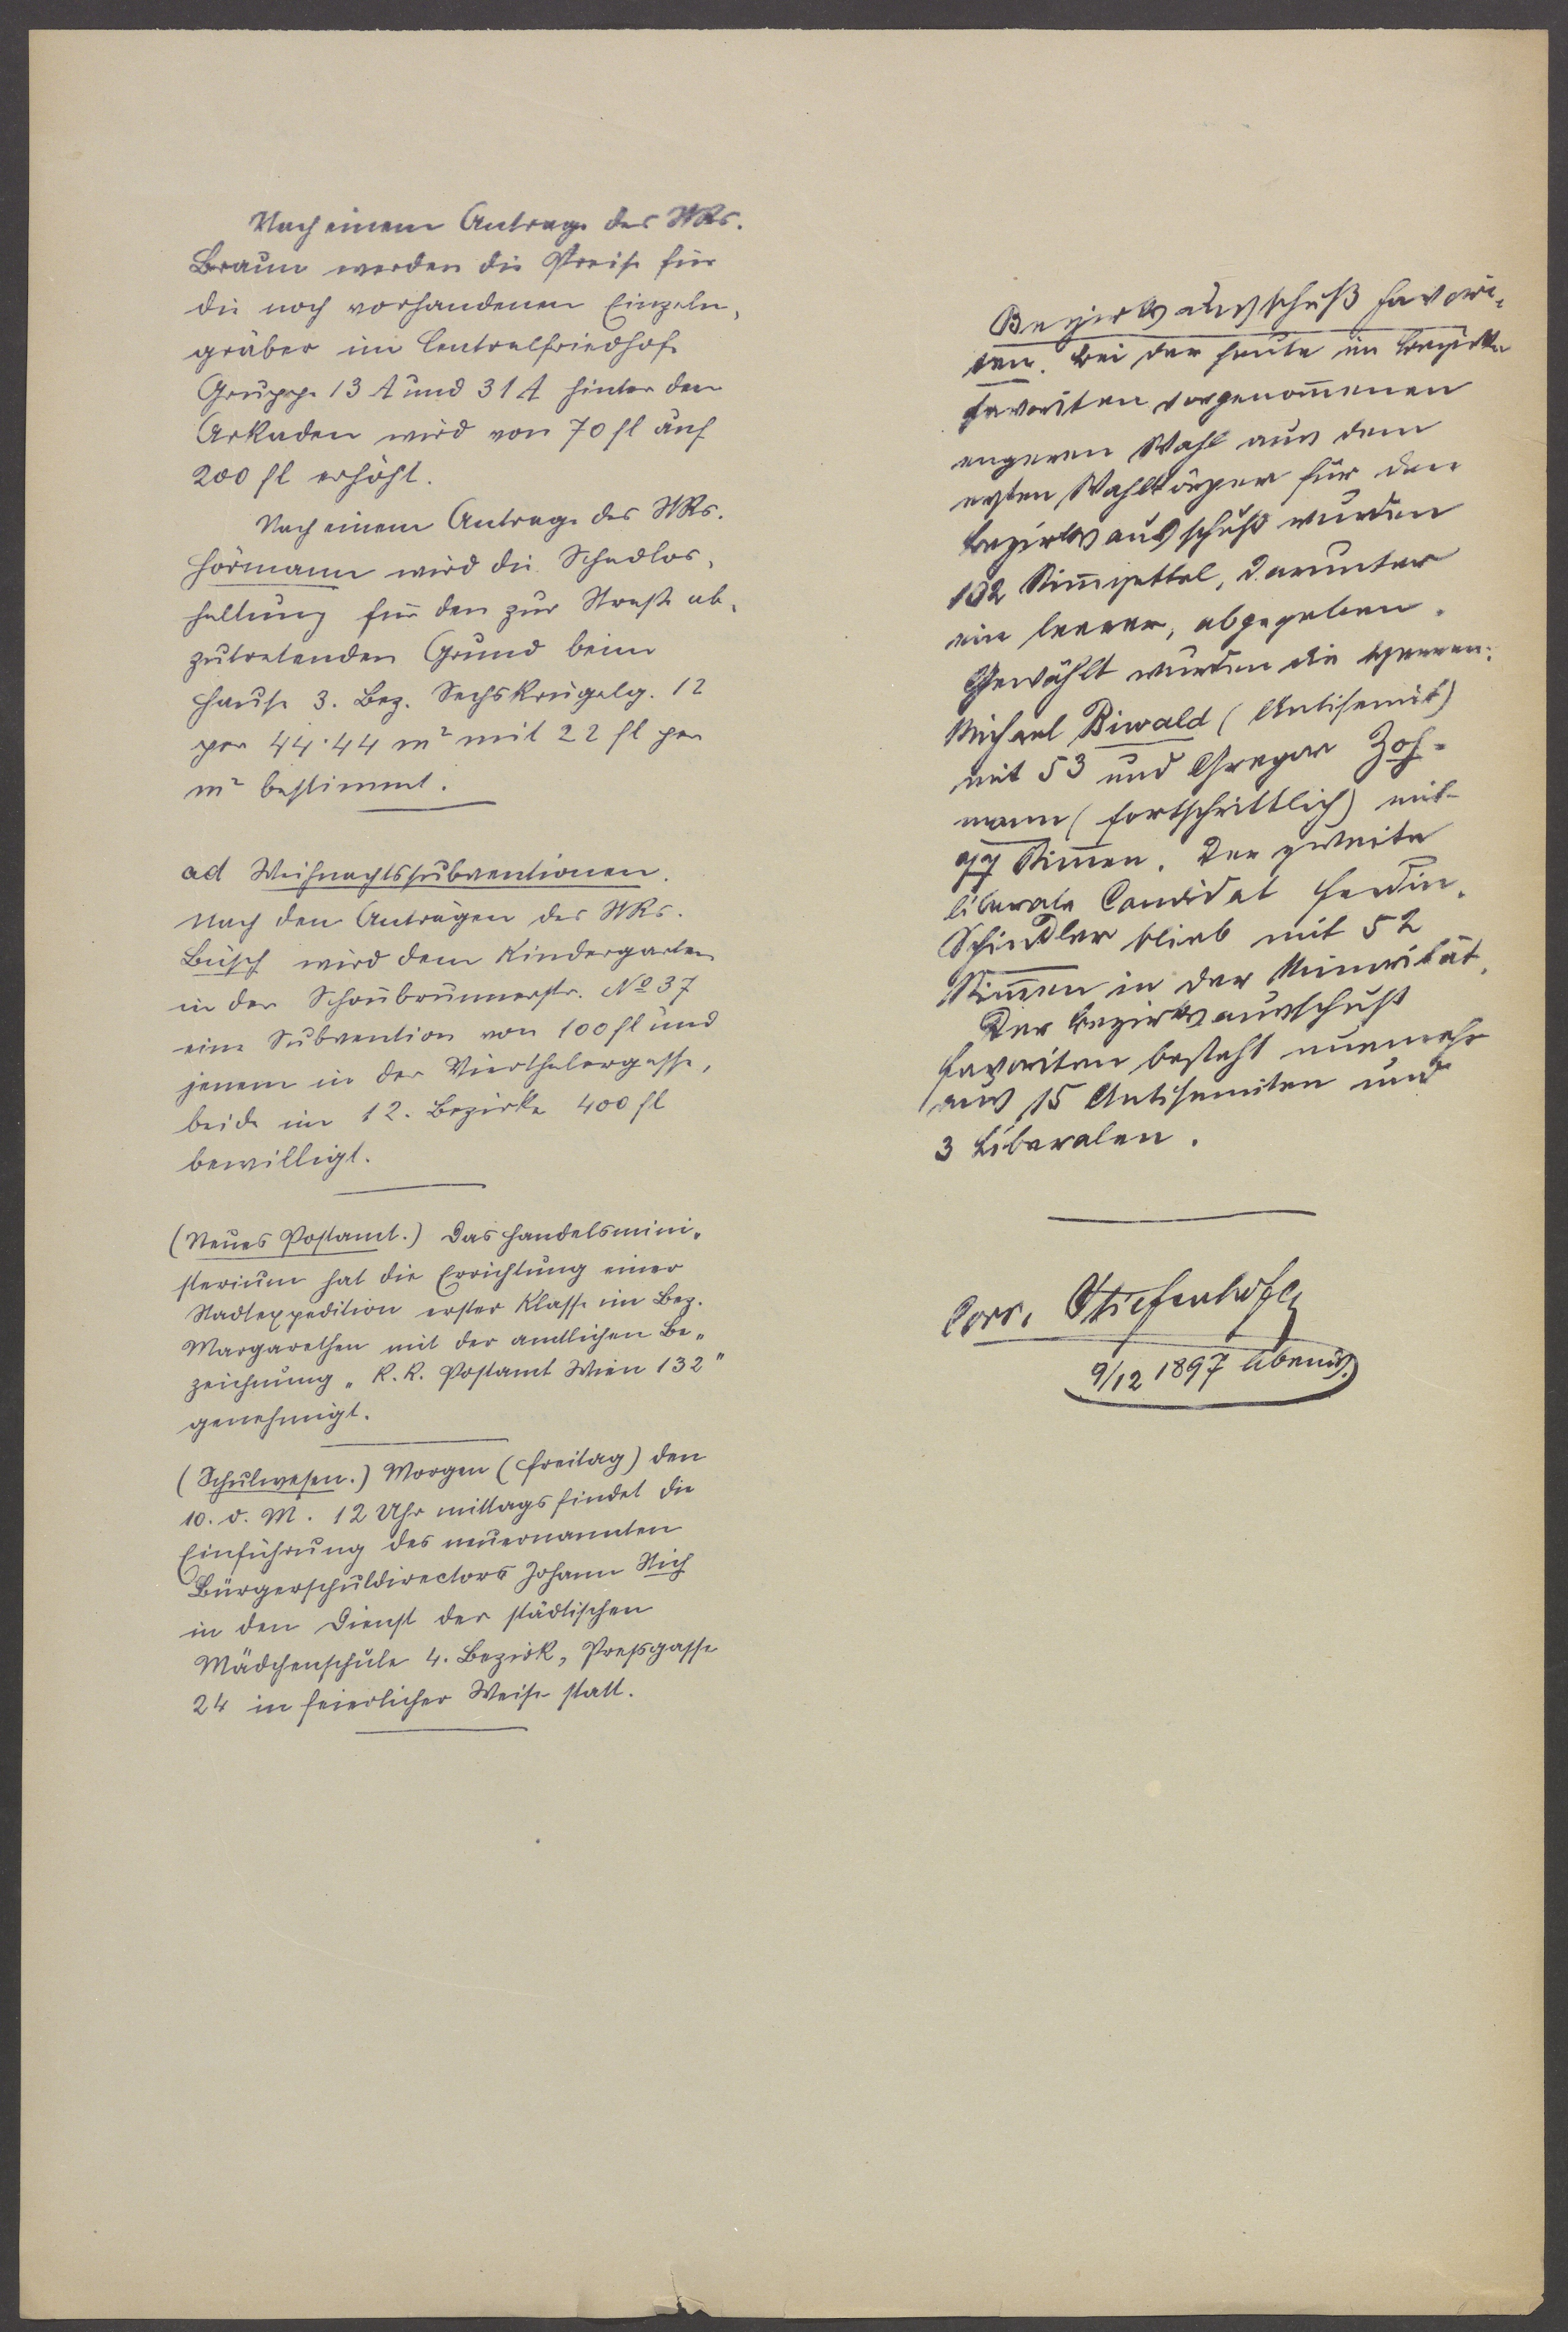 Nach einem Antrage des StRs.
Braun werden die Preise für
die noch vorhandenen Einzeln-
gräber im Centralfriedhofe
Gruppe 13 A und 31 A hinter den
Arkaden wird von 70 fl auf
200 fl erhöht.
Nach einem Antrage des StRs.
Hörmann wird die Schadlos-
haltung für den zur Straße ab-
zutretenden Grund beim
Hause 3. Bez. Sechskrügelg. 12
per 44·44 m² mit 22 fl per
m² bestimmt.
ad Weihnachtssubventionen.
Nach den Anträgen des StRs.
Büsch wird dem Kindergarten
in der Schönbrunnerstr. No 37
eine Subvention von 100 fl und
jenem in der Vierthalergasse,
beide im 12. Bezirke 400 fl
bewilligt.
(Neues Postamt.) Das Handelsmini-
sterium hat die Errichtung einer
Stadtexpedition erster Klasse im Bez.
Margarethen mit der amtlichen Be-
zeichnung „K. K. Postamt Wien 132"
genehmigt.
(Schulwesen.) Morgen (Freitag) den
10. d. M. 12 Uhr mittags findet die
Einführung des neuernannten
Bürgerschuldirectors Johann Stich
in den Dienst der städtischen
Mädchenschule 4. Bezirk, Preßgasse
24 in feierlicher Weise statt.
Bezirksausschuß Favori-
ten. Bei der heute im Bezirke
Favoriten vorgenom̄enen
engeren Wahl aus dem
ersten Wahlkörper für den
Bezirksausschuß wurden
102 Stim̄zettel, darunter
ein leerer, abgegeben.
Gewählt wurden die Herren:
Michael Biwald (Antisemit)
mit 53 und Gregor Zoh-
mann (fortschrittlich) mit
77 Stim̄en. Der zweite
liberale Candidat Ferdin.
Schindler blieb mit 52
Stim̄en in der Minorität.
Der Bezirksausschuß
Favoriten besteht nunmehr
aus 15 Antisemiten und
3 Liberalen.
Corr. Stiefenhofer
9/12 1897 abends.